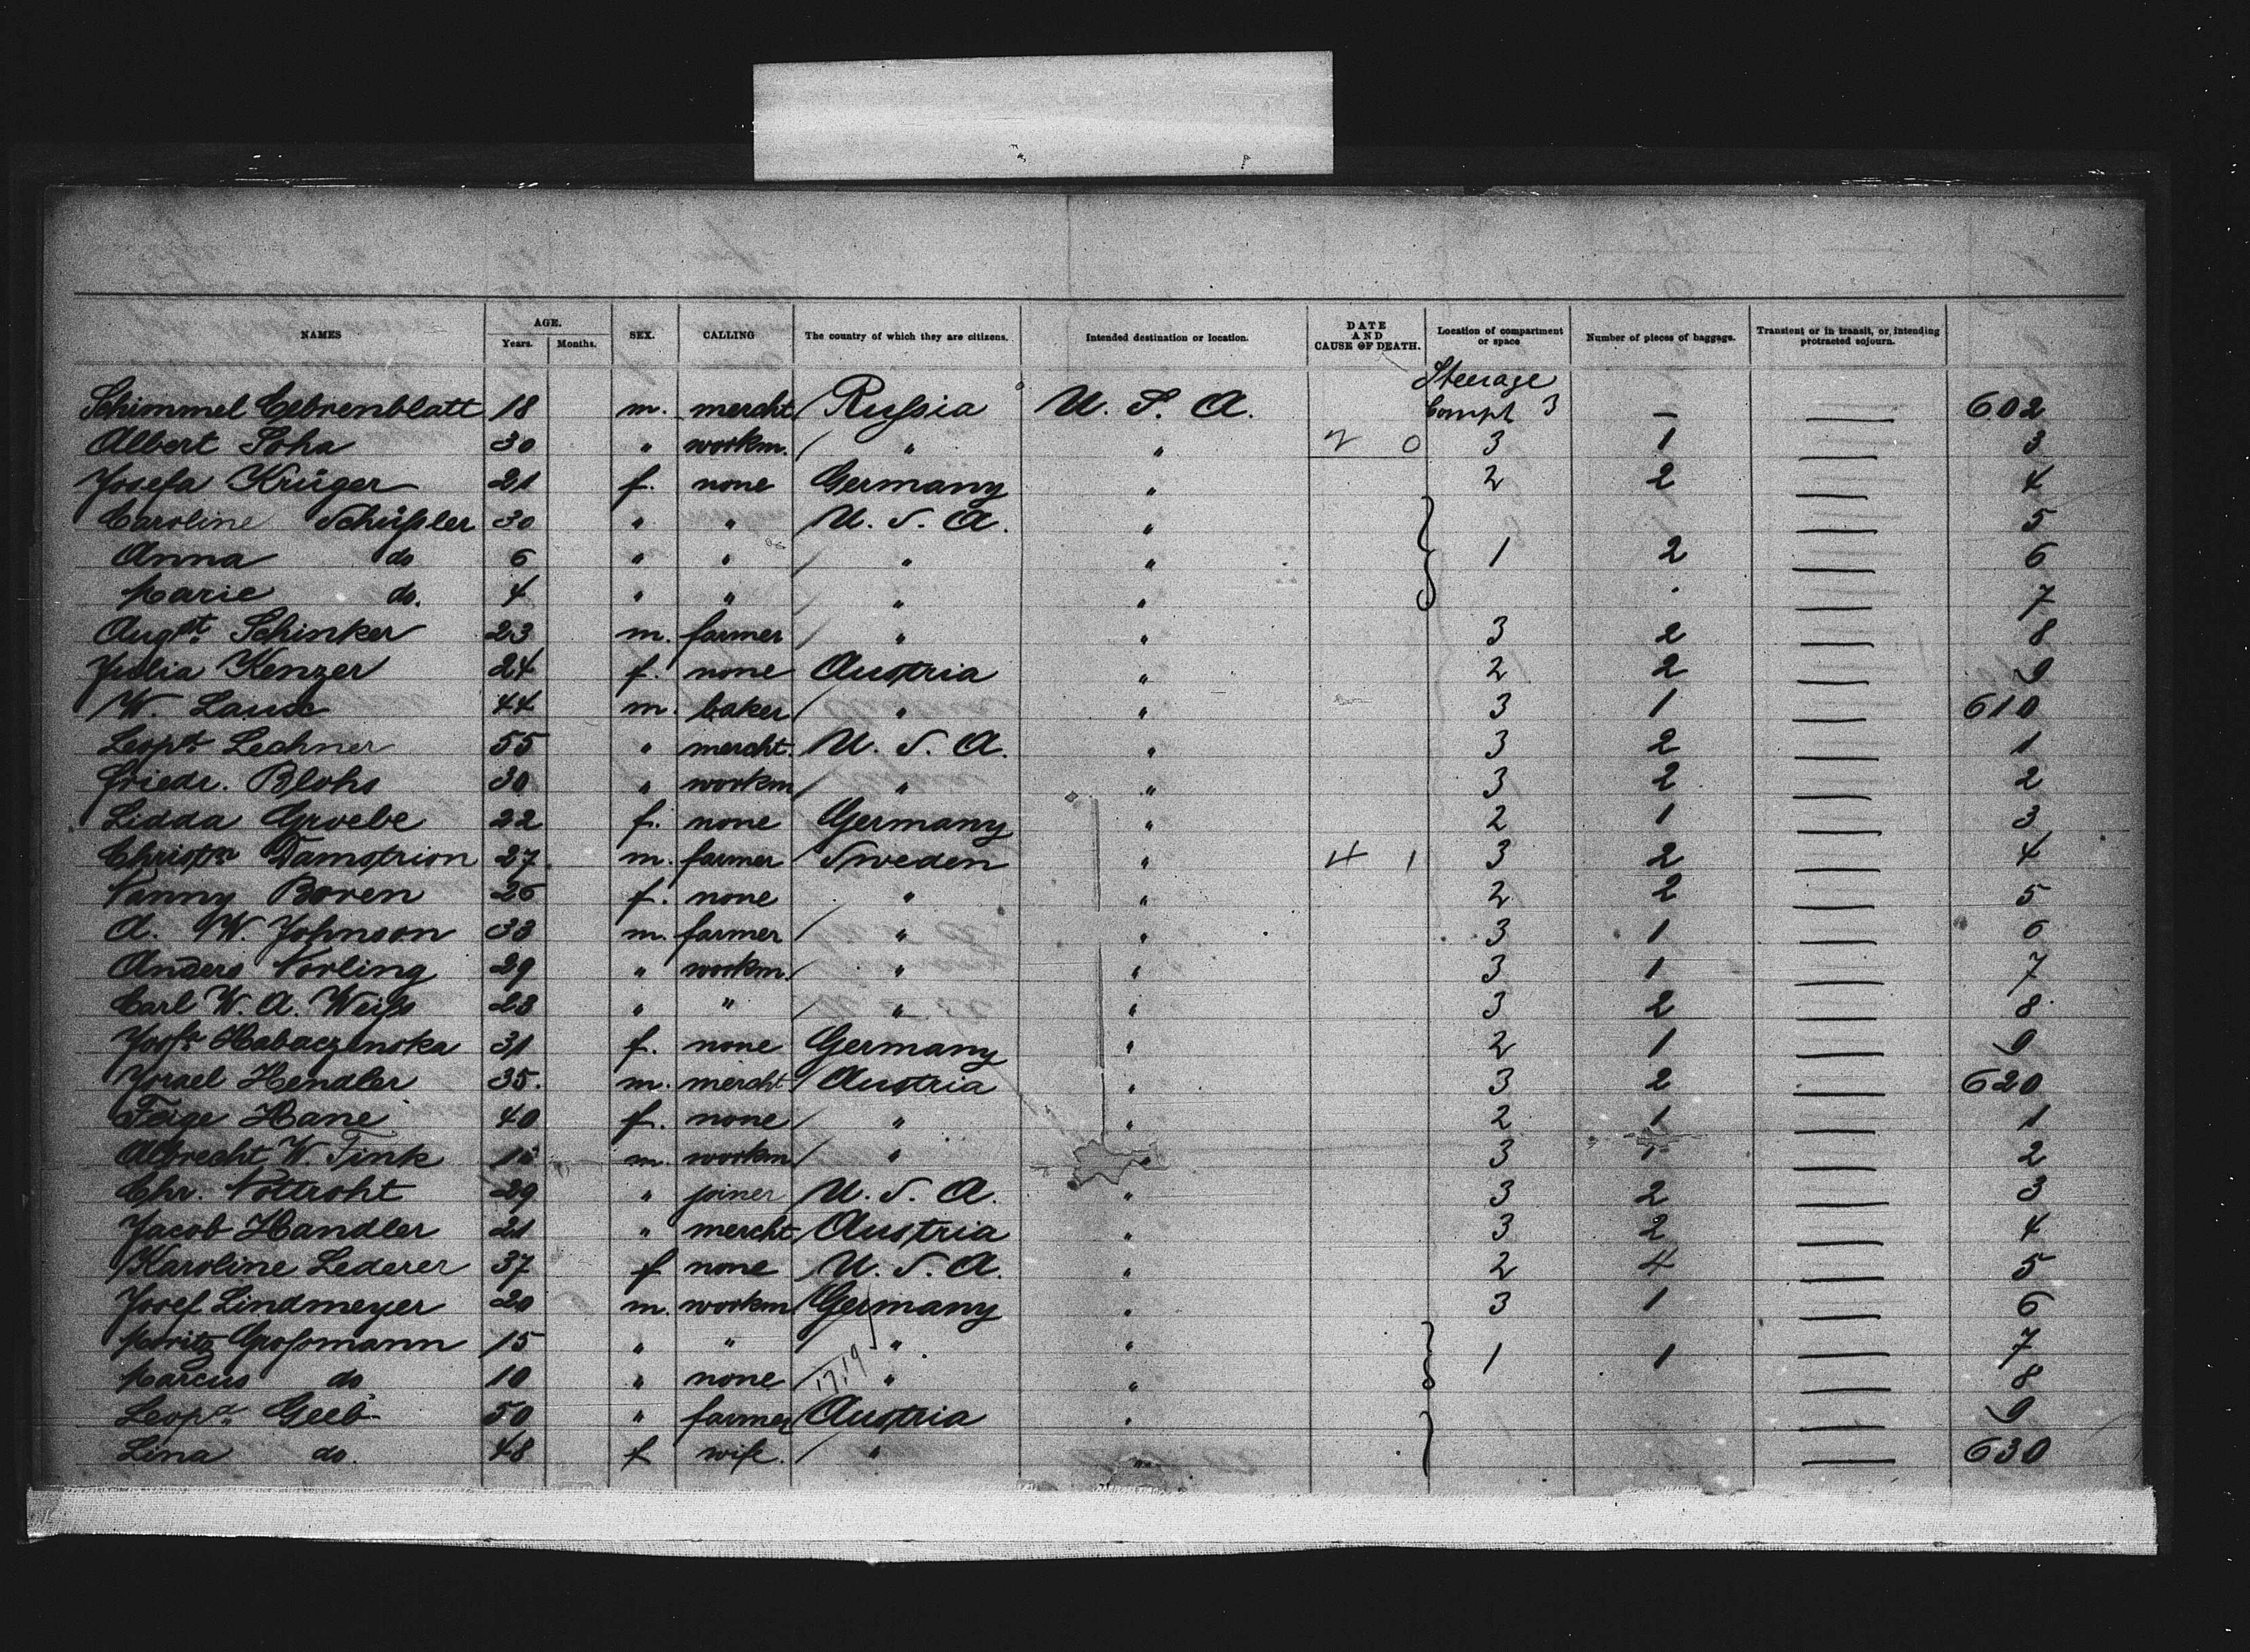 NAMES AGE. Years. Months. SEX. CALLING The country of which they are citizens. Intended destination or location. DATE AND CAUSE OF DEATH. Location of compartment or space Number of pieces of baggage. Transient or in transit, or intending protracted sojourn.
Steerage
Schimmel 18 m. mercht Russia U. S. A. Compt 3 — — 602
Albert Soha 30 " workm. / " " 2 0 3 1 — 3
Josefa Krüger 21 f. none Germany " 2 2 — 4
Caroline Schüßler 30 " " U. S. A. " — 5
Anna do 6 " " / " " 1 2 — 6
Marie do. 4 " " / " " — 7
Augst. Schinker 23 m. farmer / " " 3 2 — 8
Julia Kenzer 24 f. none Austria " 2 2 — 9
W. Lause 44 m. baker / " " 3 1 — 610
Leopd Lechner 55 " mercht. U. S. A. " 3 2 — 1
Friedr. Blohs 30 " workm / " " 3 2 — 2
Lidda Groebe 22 f. none Germany " 2 1 — 3
Christn Damstrion 27 m. farmer Sweden " 4 1 3 2 — 4
Nanny Boren 26 f. none " " 2 2 — 5
A. W. Johnson 33 m. farmer / " " 3 1 — 6
Anders Norling 29 " workm. / " " 3 1 — 7
Carl W. A. Weiß 23 " " / " " 3 2 — 8
Josfa Habaczenska 31 f. none Germany " 2 1 — 9
Israel Hendler 35. m. mercht Austria " 3 2 — 620
Feige Hane 40 f. none / " " 2 1 — 1
Albrecht W. Fink m. workm / " " 3 — 2
Chr. Nottroht 29 " joiner U. S. A. " 3 2 — 3
Jacob Handler 21 " mercht Austria " 3 2 — 4
Karoline Lederer 37 f none U. S. A. " 2 4 — 5
Josef Lindmeyer 20 m. workm Germany " 3 1 — 6
Moritz Großmann 15 " " / " " 1 1 — 7
Marcus do 10 " none / " " 8
Leopd Geeb 50 " farmer Austria " — 9
Lina do. 48 f wife. / " " — 630